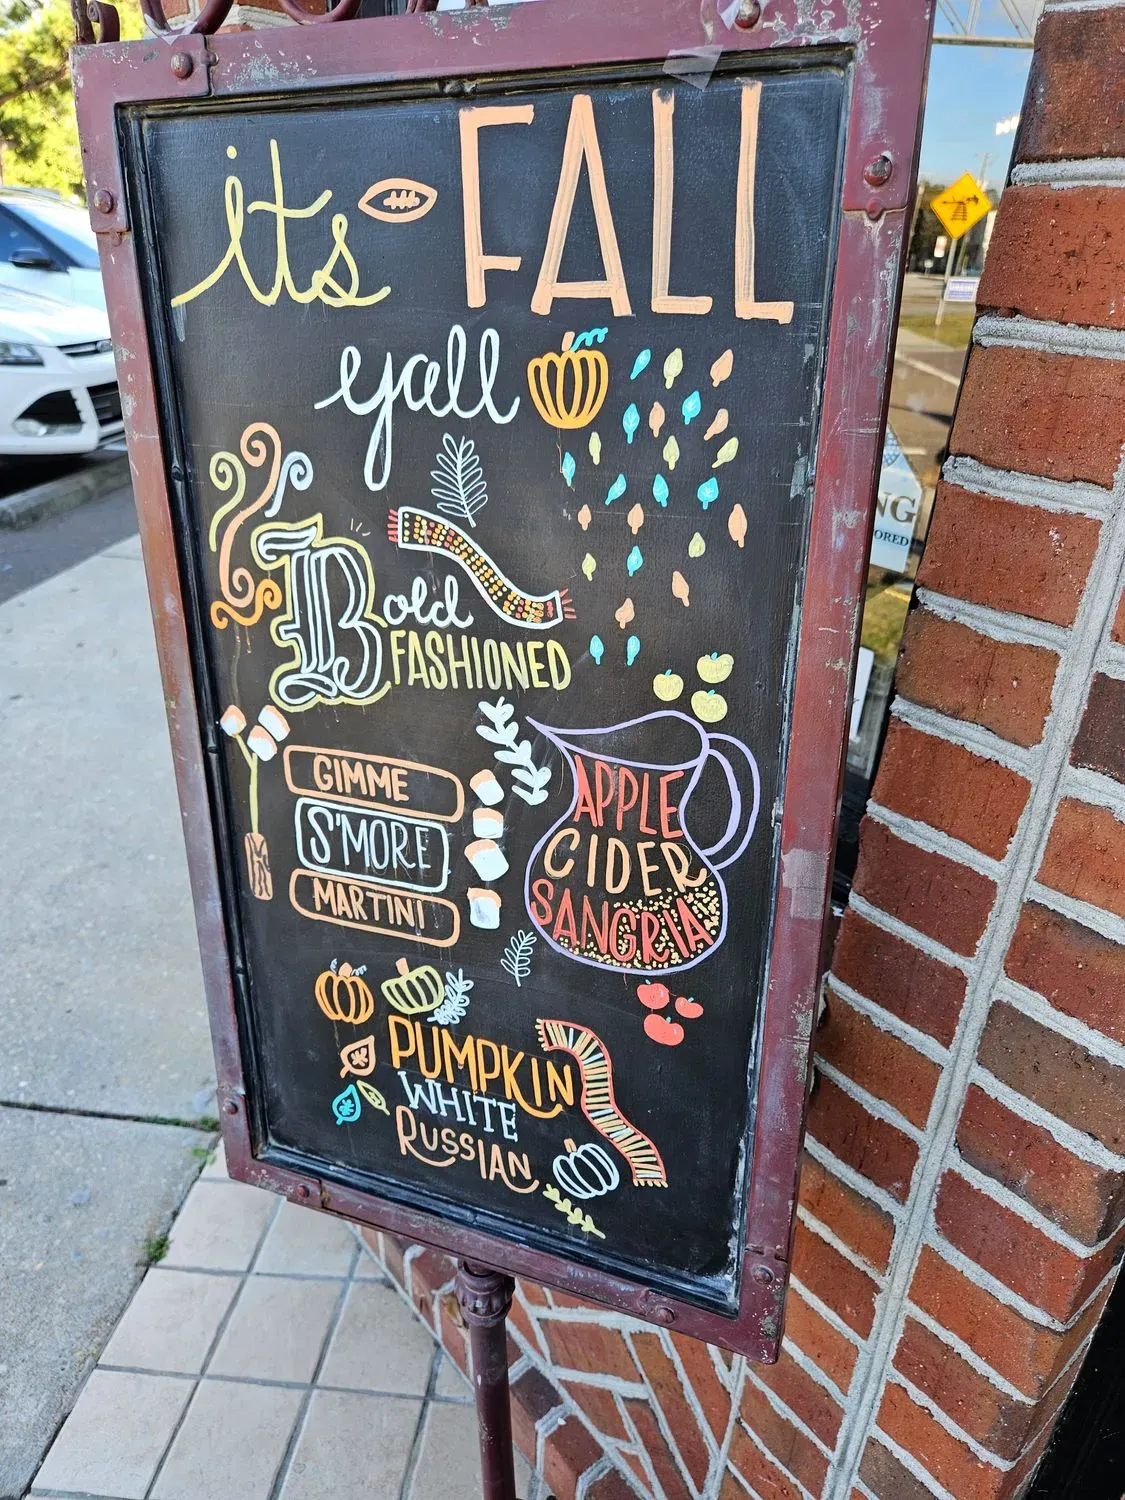 its FALL
yall
Bold
FASHIONED
GIMME
S'MORE
MARTINI
APPLE
CIDER
SANGRIA
PUMPKIN
WHITE
RUSSIAN
NG
ORED